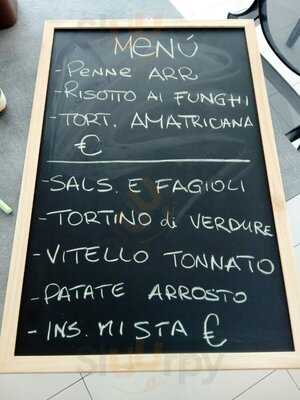 MENÚ
- PENNE ARR
- RISOTTO AI FUNGHI
- TORT. AMATRICIANA
€
- SALS. E FAGIOLI
- TORTINO di VERDURE
- VITELLO TONNATO
- PATATE ARROSTO
- INS. MISTA €